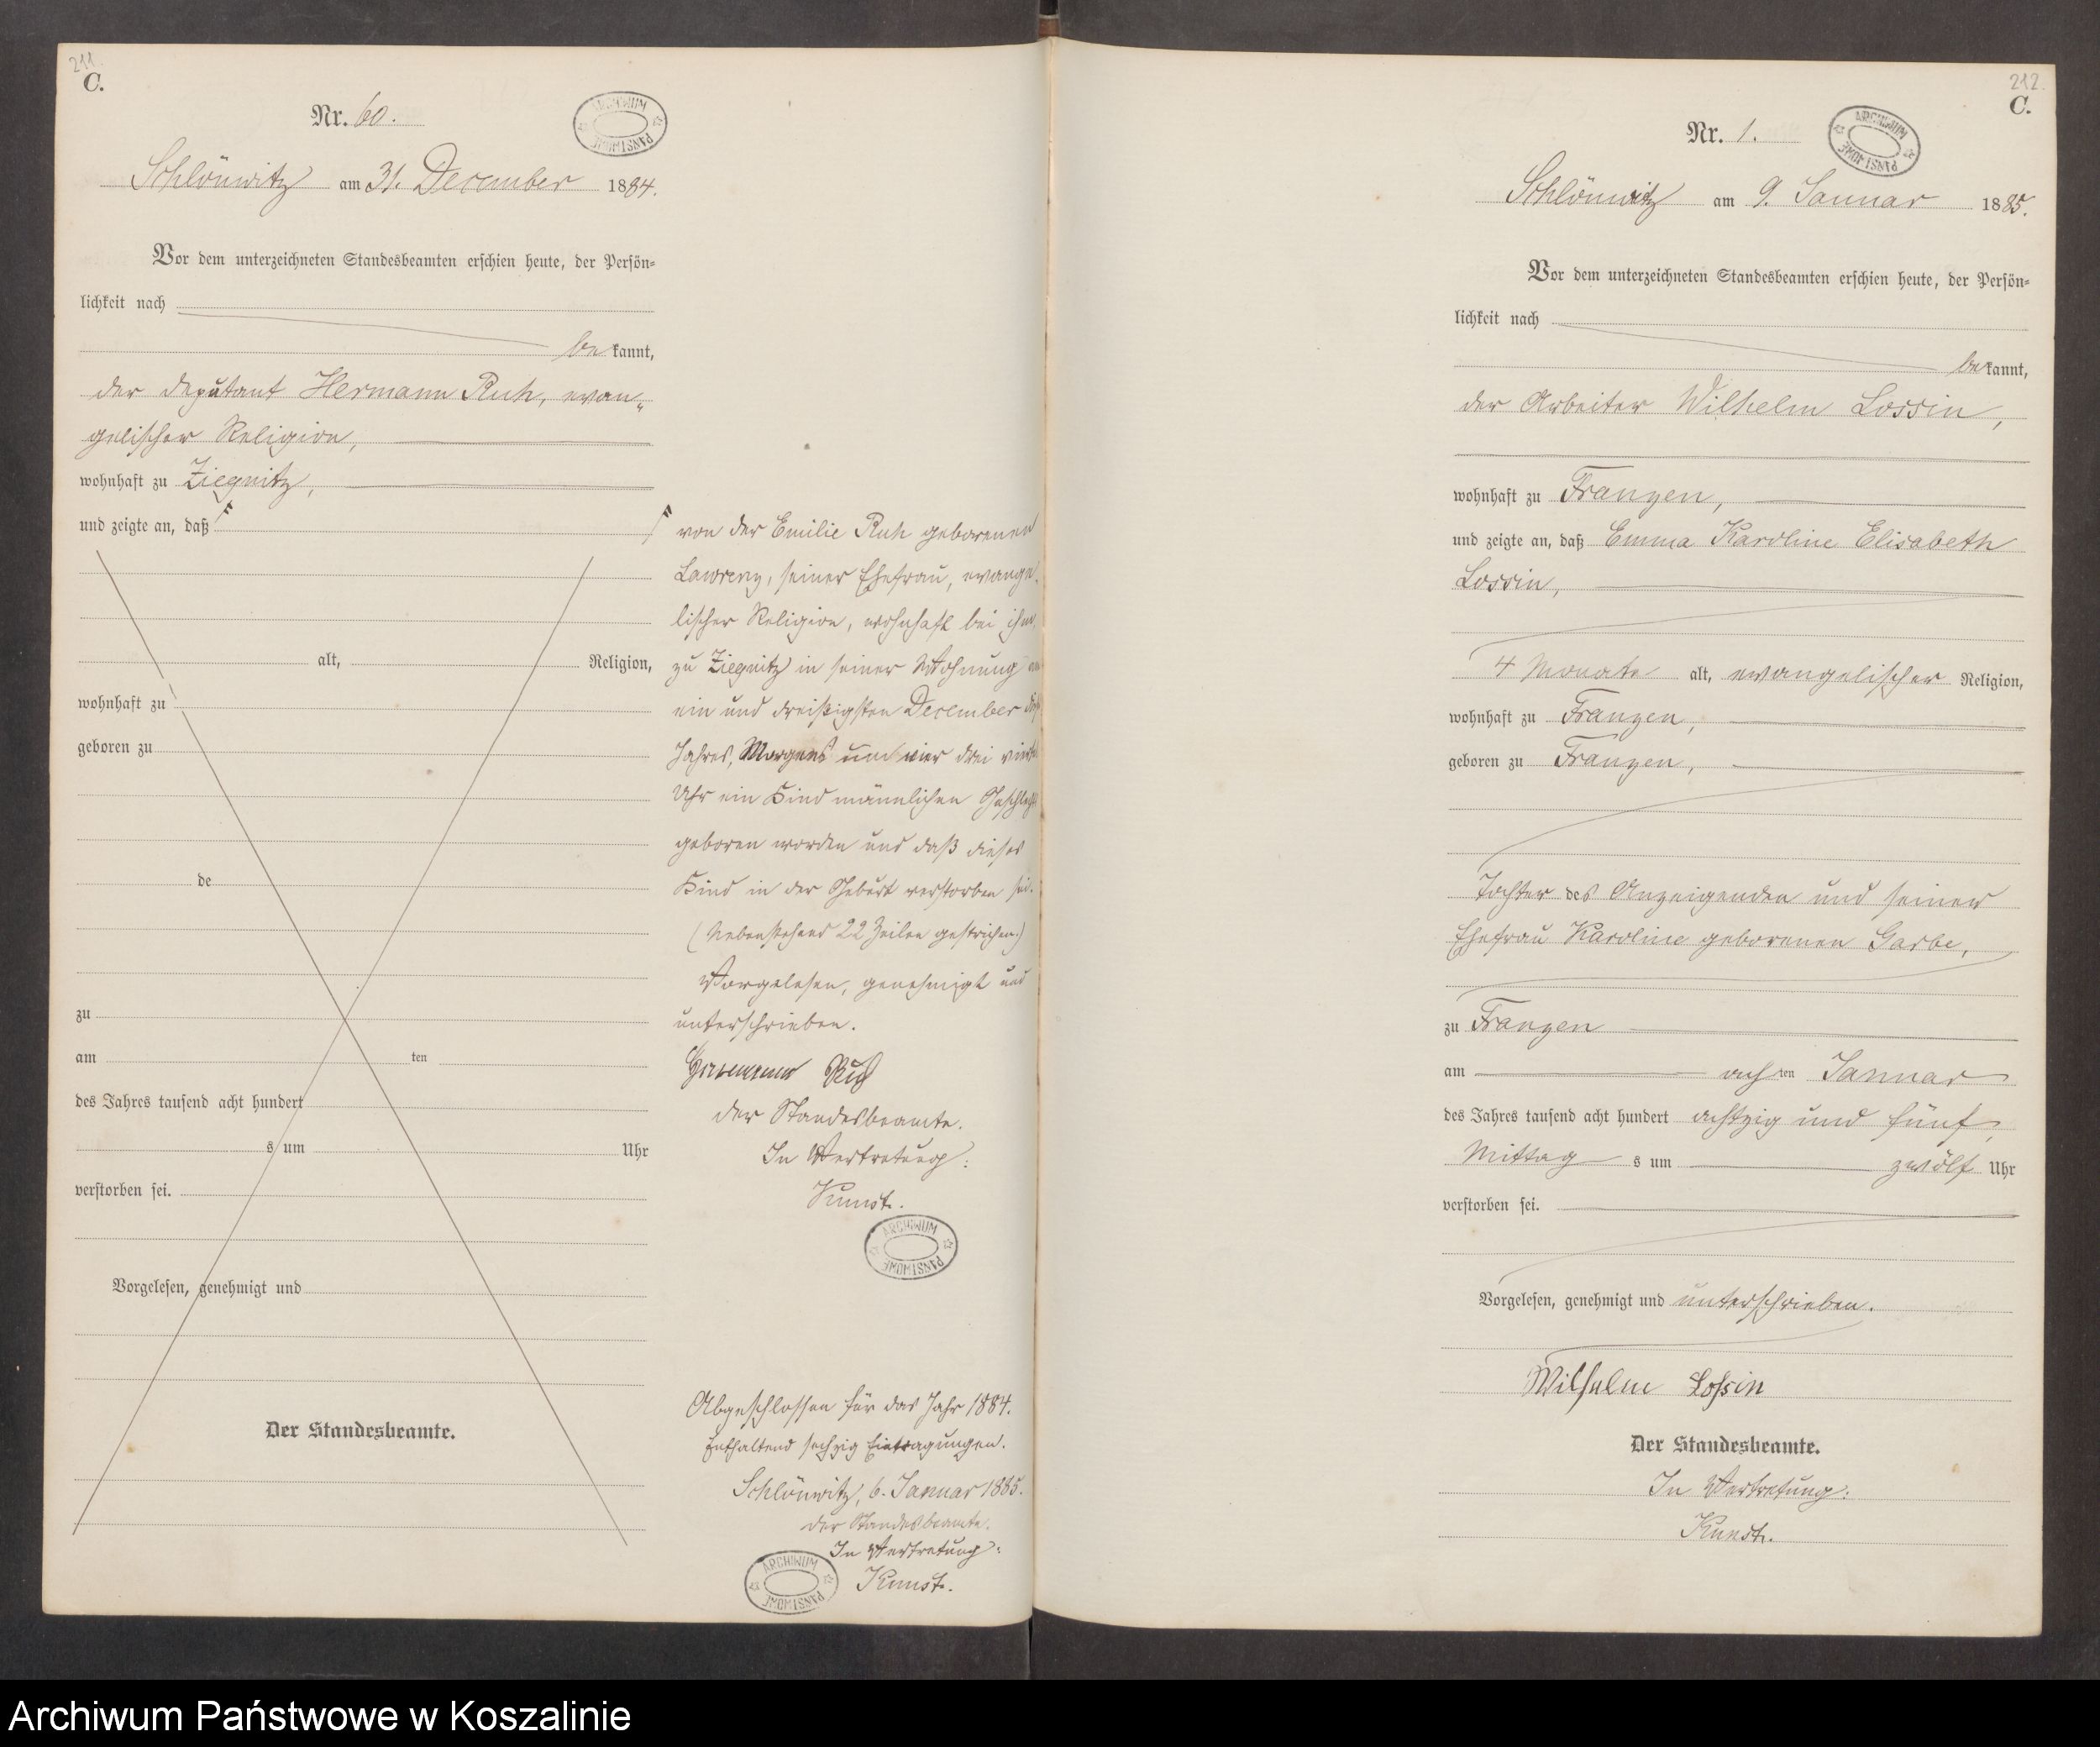 211.
C.
Nr. 60.
ARCHIWUM PAŃSTWOWE
Schlönwitz am 31. December 1884.
Vor dem unterzeichneten Standesbeamten erschien heute, der Persön-
lichkeit nach
be kannt,
der Deputant Hermann Ruh, evan-
gelischer Religion,
wohnhaft zu Ziegnitz,
und zeigte an, daß
alt, Religion,
wohnhaft zu
geboren zu
de
zu
am ten
des Jahres tausend acht hundert
s um Uhr
verstorben sei.
Vorgelesen, genehmigt und
Der Standesbeamte.
von der Emilie Ruh geborenen
Lawrenz, seiner Ehefrau, evange-
lischer Religion, wohnhaft bei ihm
zu Ziegnitz in seiner Wohnung am
ein und dreißigsten December
Jahres, Morgens um vier drei viertel
Uhr ein Kind männlichen Geschlechts
geboren worden und daß dieses
Kind in der Geburt verstorben sei.
(Nebenstehend 22 Zeilen gestrichen.)
Vorgelesen, genehmigt und
unterschrieben.
Hermann Ruh
Der Standesbeamte.
In Vertretung:
Kunst.
ARCHIWUM PAŃSTWOWE
Abgeschlossen für das Jahr 1884.
Enthaltend sechzig Eintragungen.
Schlönwitz, 6. Januar 1885.
Der Standesbeamte.
In Vertretung:
Kunst.
ARCHIWUM PAŃSTWOWE
212.
C.
Nr. 1.
ARCHIWUM PAŃSTWOWE
Schlönwitz am 9. Januar 1885.
Vor dem unterzeichneten Standesbeamten erschien heute, der Persön-
lichkeit nach
be kannt,
der Arbeiter Wilhelm Lossin,
wohnhaft zu Franzen,
und zeigte an, daß Emma Karoline Elisabeth
Lossin,
4 Monate alt, evangelischer Religion,
wohnhaft zu Franzen,
geboren zu Franzen,
Tochter des Anzeigenden und seiner
Ehefrau Karoline geborenen Garbe,
zu Franzen
am achten Januar
des Jahres tausend acht hundert achtzig und fünf,
Mittag s um zwölf Uhr
verstorben sei.
Vorgelesen, genehmigt und unterschrieben.
Wilhelm Lossin
Der Standesbeamte.
In Vertretung:
Kunst.
Archiwum Państwowe w Koszalinie